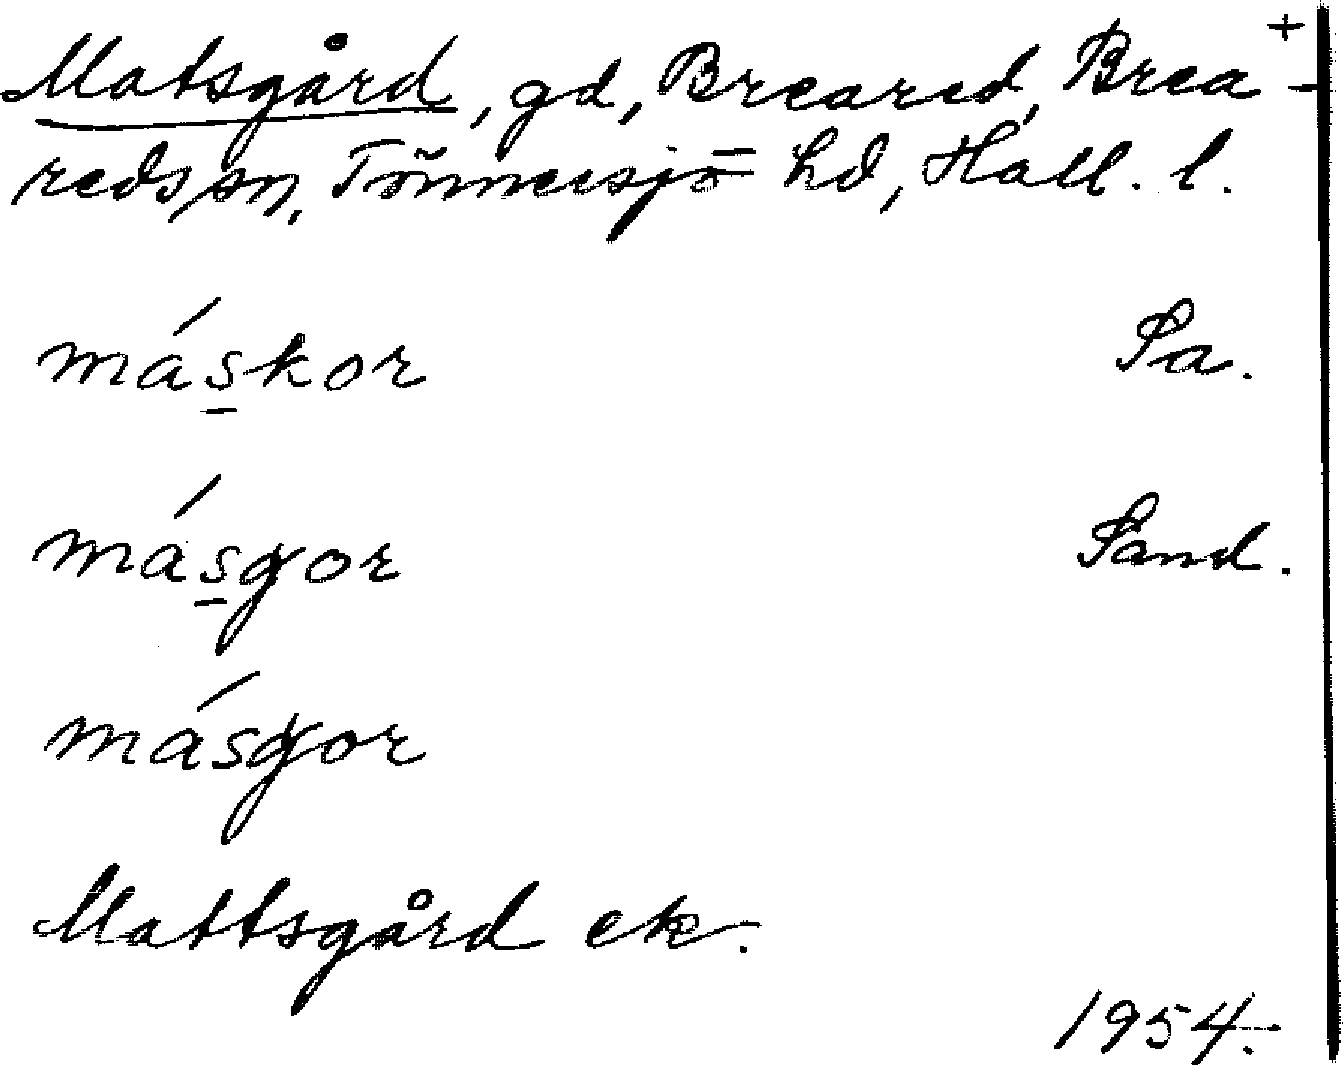 +
Matsgård, gd, Breared, Brea-
reds sn, Tönnersjö hd, Hall. l.
máskor Sa.
másgor Sand.
másgor
Mattsgård ek.
1954.